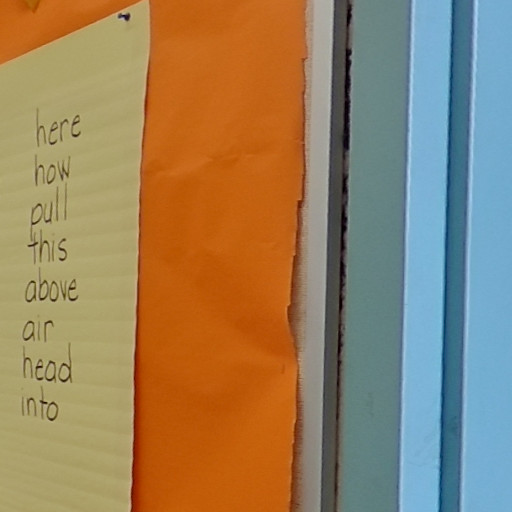 here
how
pull
this
above
air
head
into